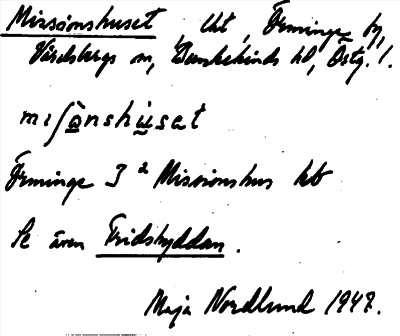 Missionshuset, lht, Förminge by,
Vårdsbergs sn, Bankekinds hd, Östg. l.
mıʃȯ̤nshṳ̇sat
Förminge 3² Missionshus kb
Se även Fridshyddan.
Maja Nordlund 1947.